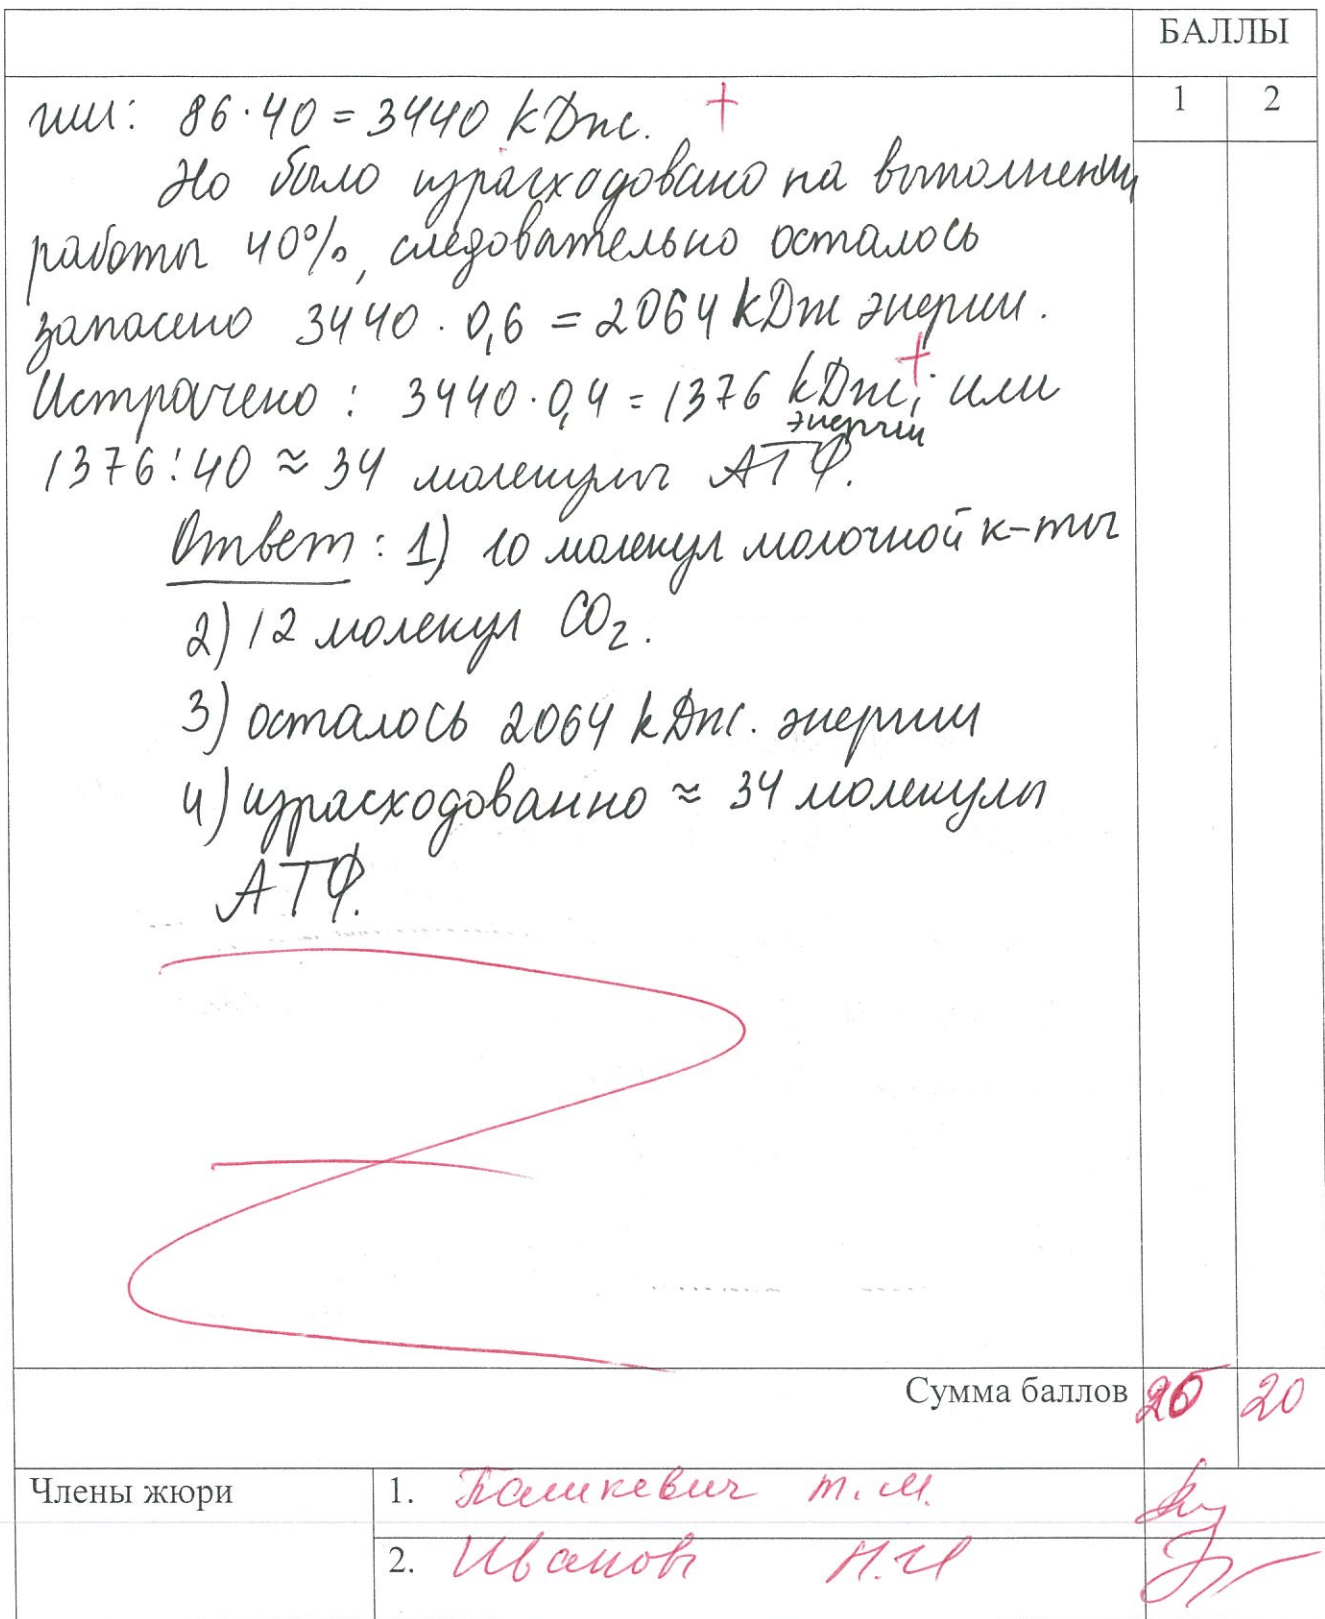 БАЛЛЫ
1 2
гии: 86·40 = 3440 кДж. +
Но было израсходовано на выполнении
работы 40%, следовательно осталось
запасено 3440 · 0,6 = 2064 кДж энергии.
Истрачено : 3440·0,4 = 1376 кДж; или +
энергии
1376:40 ≈ 34 молекулы АТФ.
Ответ : 1) 10 молекул молочной к-ты
2) 12 молекул CO₂.
3) осталось 2064 кДж. энергии
4) израсходованно ≈ 34 молекулы
АТФ.
Сумма баллов 20
Члены жюри
1. т.м.
2. Иванов Н.И